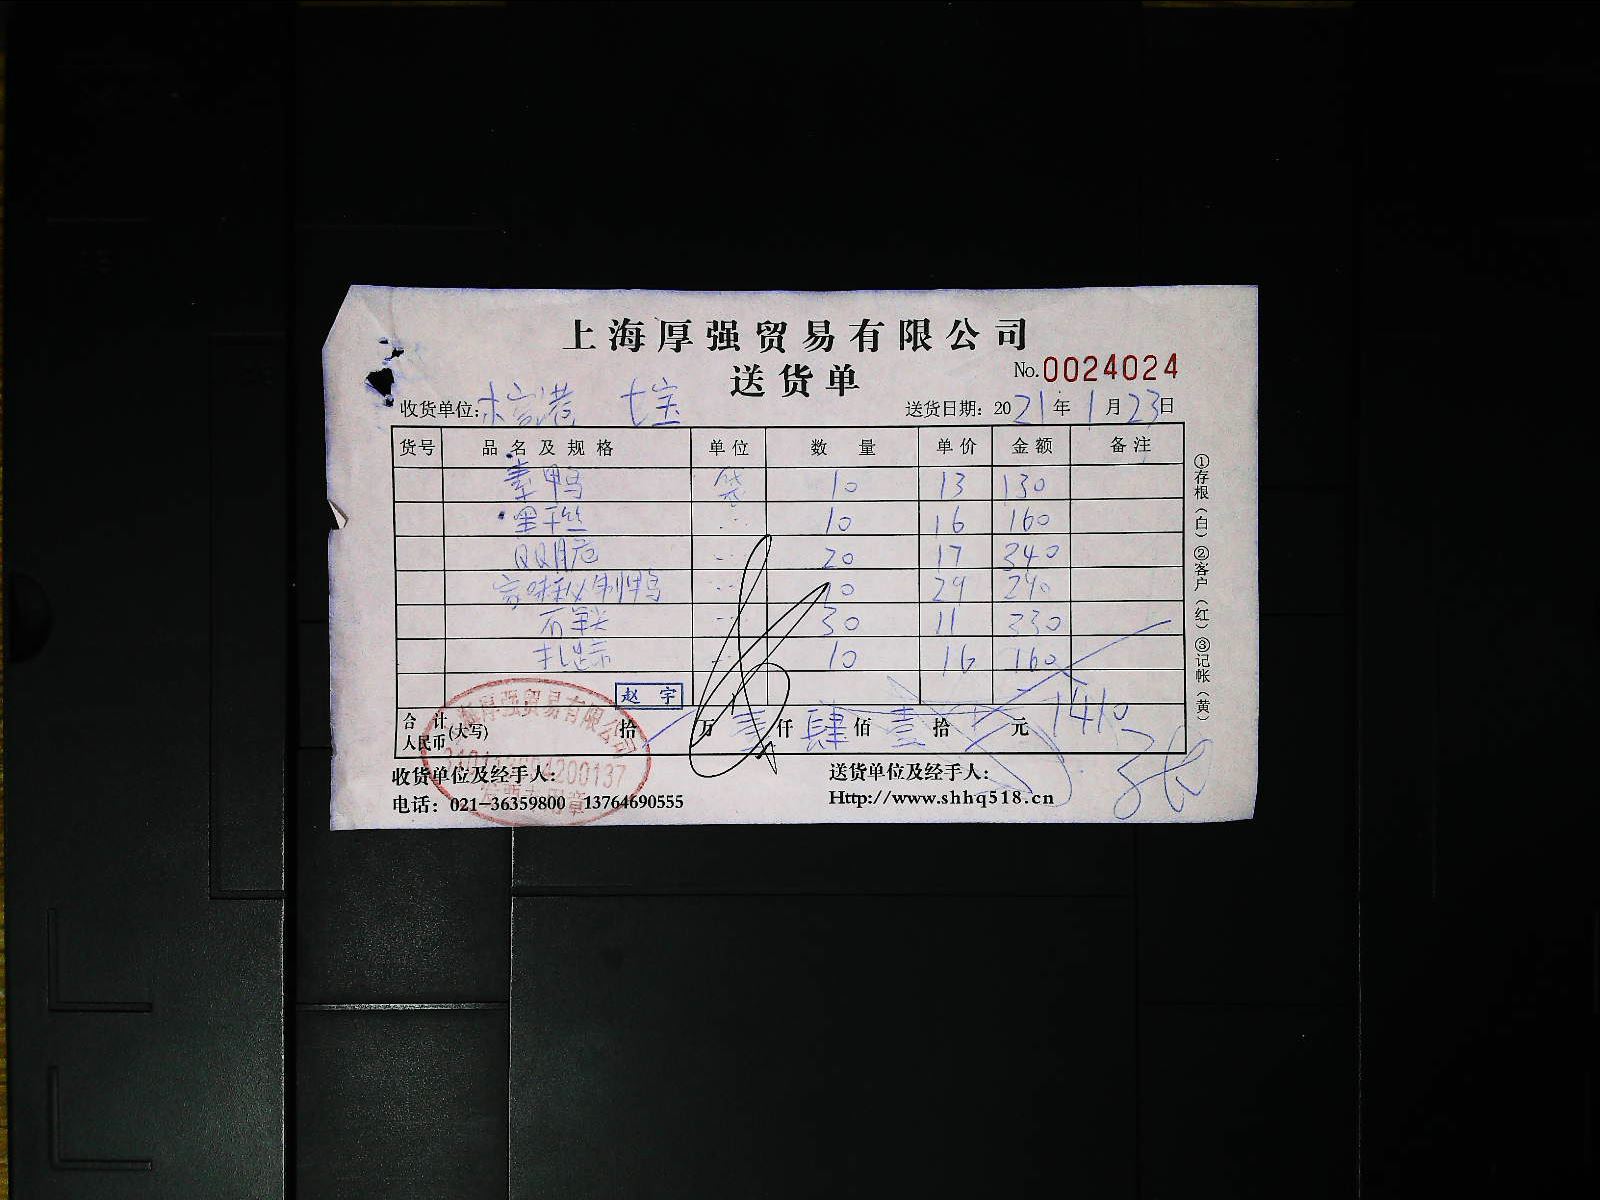 上海厚强贸易有限公司
送货单
No.0024024
收货单位: 港 七宝
送货日期: 2021年1月23日
货号 品名及规格 单位 数量 单价 金额 备注
素鸭 袋 10 13 130
黑干丝 10 16 160
QQ 20 17 340
秘制鸭 10 29 290
30 11 330
扎蹄 10 16 160
赵宇
合计人民币(大写) 拾 万 肆佰壹拾 元 1410
收货单位及经手人:
送货单位及经手人:
电话: 021-36359800 13764690555
Http://www.shhq518.cn
①存根(白)②客户(红)③记帐(黄)